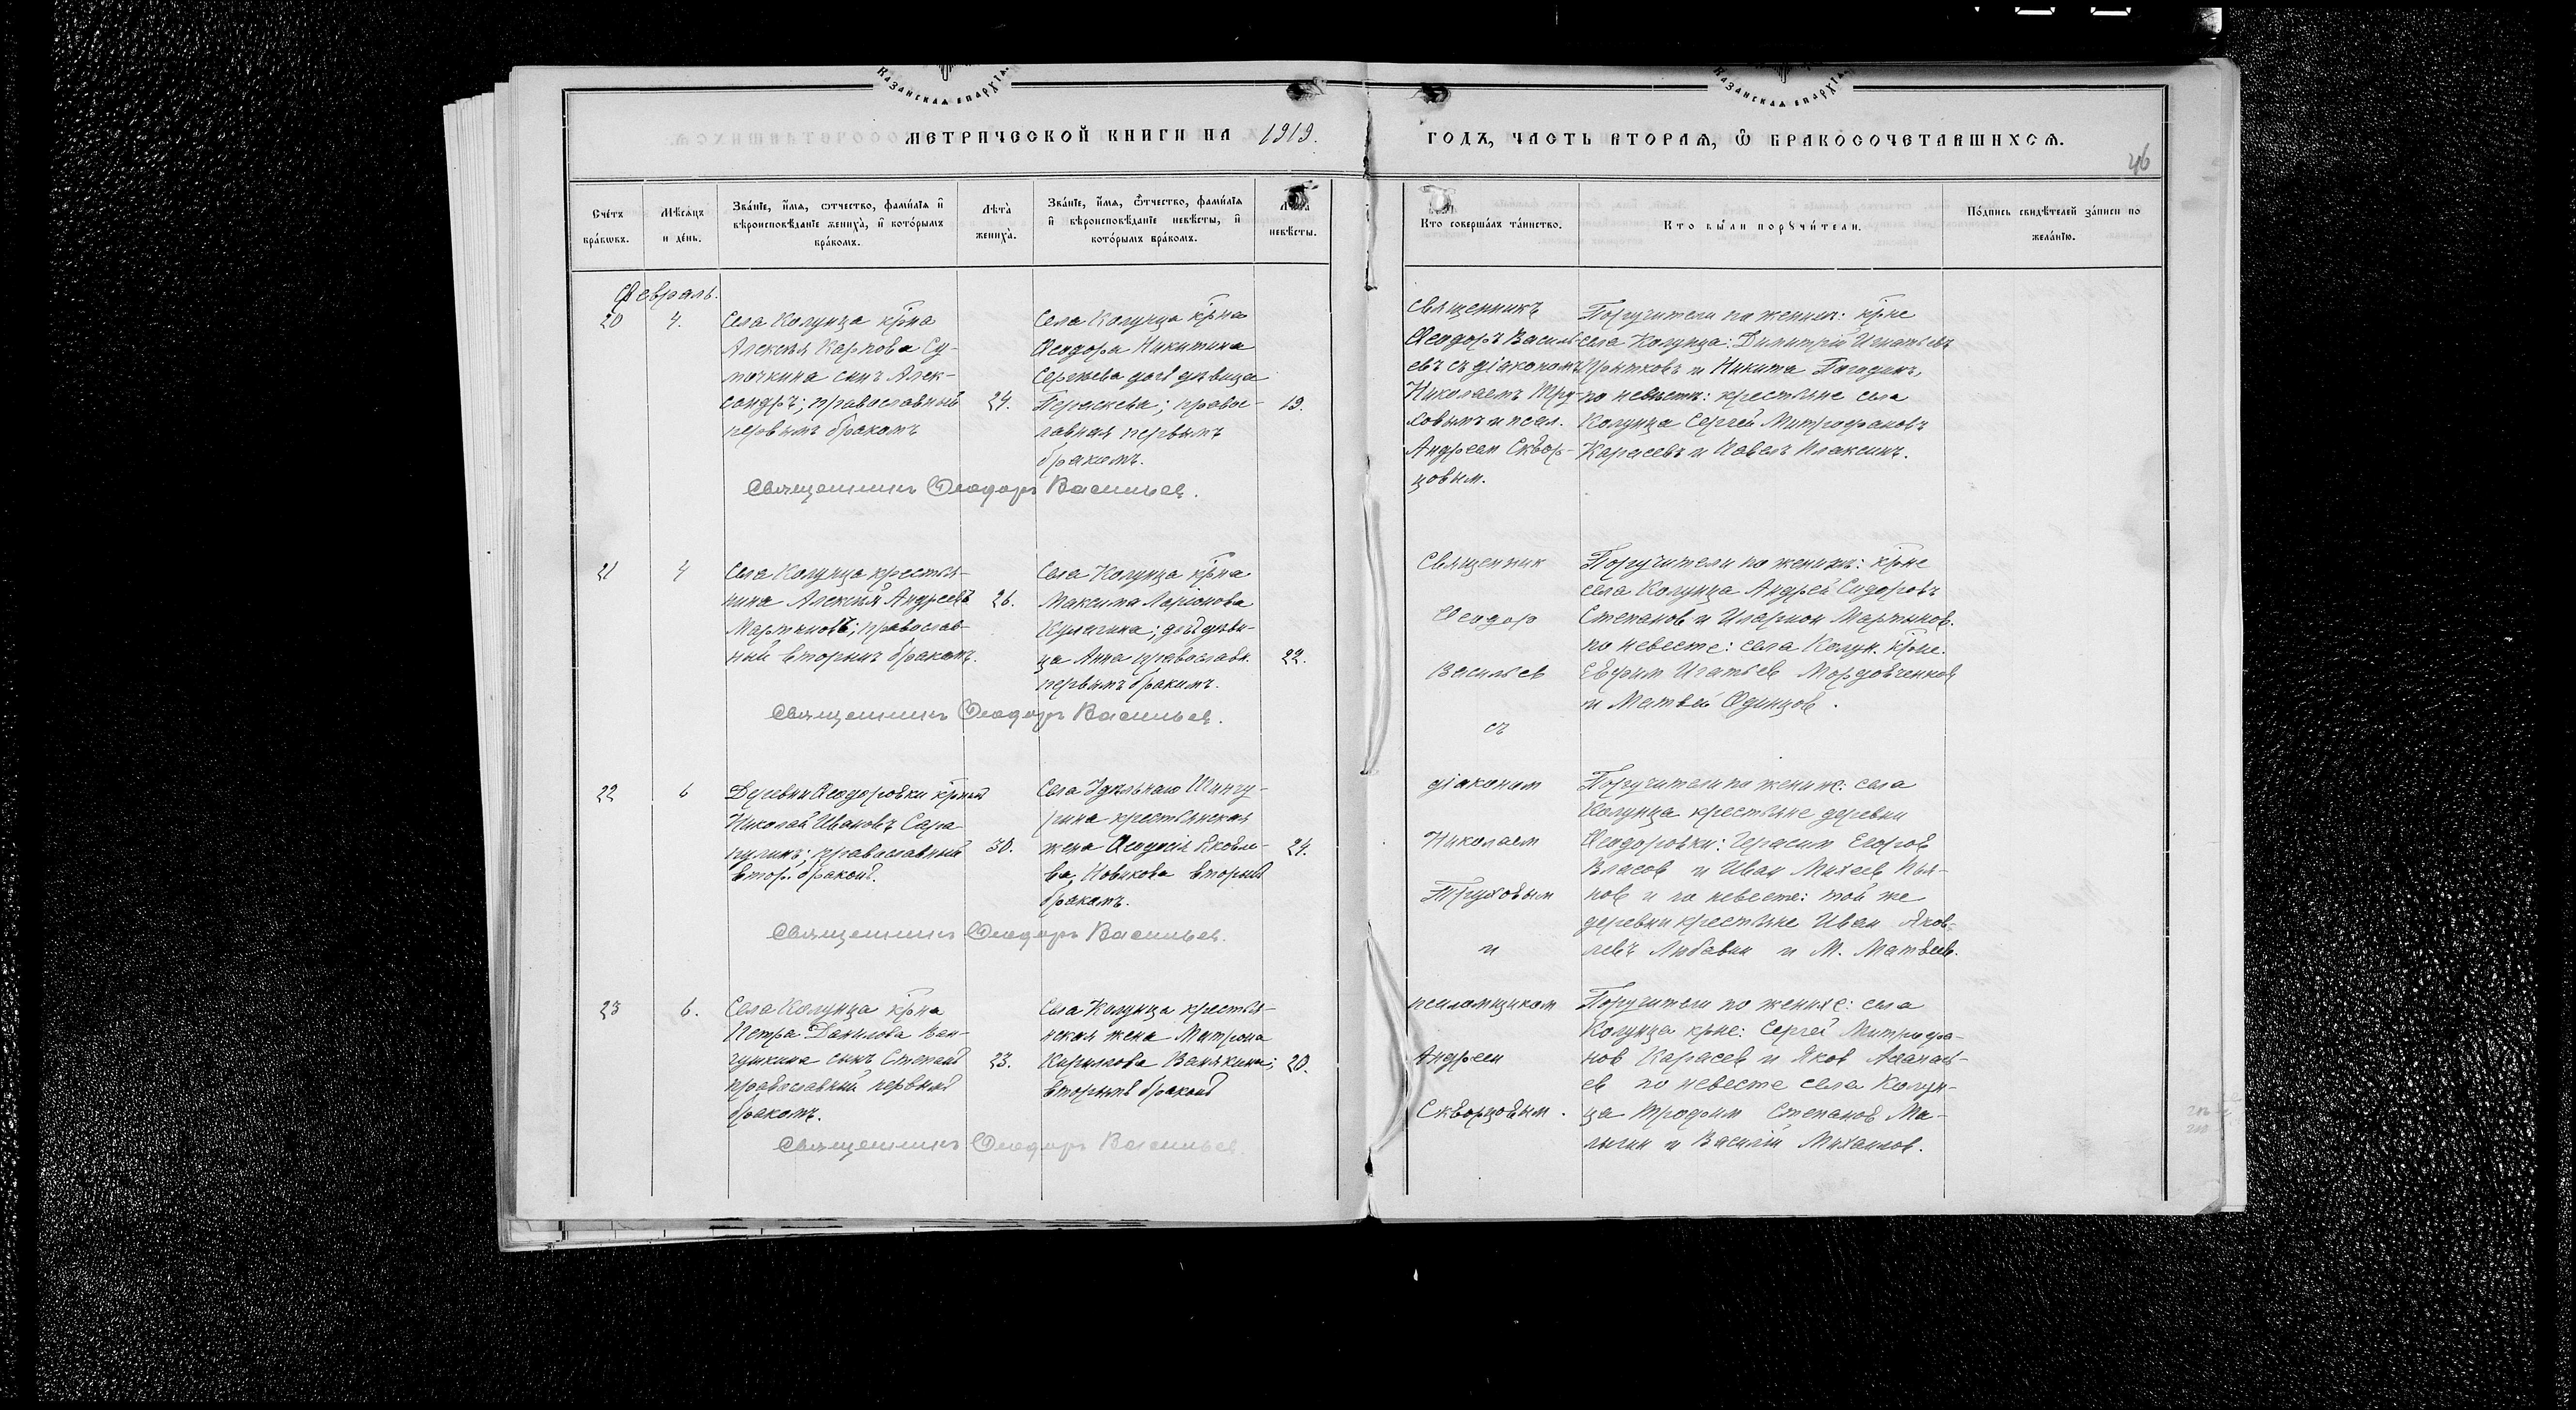 КАЗАНСКАѦ ЕПАРХІА.
КАЗАНСКАѦ ЕПАРХІА.
МЕТРИЧЕСКОЙ КНИГИ НА 1919.
ГОДЪ, ЧАСТЬ ВТОРАѦ, Ѿ БРАКОСОЧЕТАВШИХСѦ.
46
Счетъ бракѡвъ.
Мѣсѧцъ и день.
Званїе, имѧ, ѻтчество, фамилїѧ и вѣроисповѣданїе жениха, и которымъ бракомъ.
Лѣта жениха.
Званїе, имѧ, ѻтчество, фамилїѧ и вѣроисповѣданїе невѣсты, и которымъ бракомъ.
невѣсты.
Кто совершалъ таинство.
Кто были порꙋчители.
Подпись свидѣтелей записи по желанїю.
Февраль.
20
4.
Села Колунца кр-на
Алексѣя Карпова Су-
мочкина сынъ Алек-
сандръ; православный
первымъ бракомъ
24.
Села Колунца кр-на
Ѳеодора Никитина
Сергѣева дочь дѣвица
Параскева; правос-
лавная первымъ
бракомъ.
19.
Священникъ Ѳеодоръ Васильев.
Священникъ
Ѳеодоръ Василь-
евъ съ діакономъ
Николаемъ Тру-
ховымъ и псал.
Андреем Сквор-
цовым.
Поручители по жених: кр-не
села Колунца: Димитрій Игнатьевъ
Прытковъ и Никита Погодинъ,
по невестѣ: крестьяне села
Колунца Сергей Митрофановъ
Карасевъ и Павелъ Плаксинъ.
21
4
Села Колунца крестья-
нина Алексѣй Андреевъ
Мартыновъ; православ-
ный вторымъ бракомъ.
26.
Села Колунца кр-на
Максима Ларіонова
Кулагина; дочь дѣви-
ца Анна православн.
первымъ бракомъ.
22.
Священникъ Ѳеодоръ Васильев.
Священник
Ѳеодор
Васильев
съ
Поручители по женихѣ: кр-не
села Колунца Андрей Сидоровъ
Степанов и Иларион Мартынов.
по невесте: села Колун. кр-не.
Ефрим Игатьев Мордовченков
и Матвей Одинцов.
22
6
Деревни Ѳеодоровки кр-нъ
Николай Ивановъ Сара-
пулинъ; православный
втор. бракомъ.
30.
Села Удѣльнаго Шингу-
рина крестьянская
жена Ѳеодосія Яковле-
ва, Новикова вторымъ
бракомъ.
24.
Священникъ Ѳеодоръ Васильев.
діаконом
Николаем
Труховым
и
Поручители по женихе: села
Колунца крестьяне деревни
Ѳеодоровки: Герасим Егоров
Власов и Иван Михеев Пья-
нов и по невесте: той же
деревни крестьяне Иван Яков-
левъ Любавин и М. Матвеев.
23
6.
Села Колунца кр-на
Петра Данилова Ван-
чушкина сынъ Степанъ
православный первымъ
бракомъ.
23.
Села Колунца крестья-
нская жена Матрона
Кирилова Ванякина;
вторымъ бракомъ
20.
Священникъ Ѳеодоръ Васильев.
псаломщиком
Андреем
Скворцовым.
Поручители по женихе: села
Колунца кр-не: Сергей Митрофа-
нов Карасев и Яков Афанась-
ев по невесте села Колун-
ца Трофим Степанов Ма-
лыгин и Василий Михаилов.